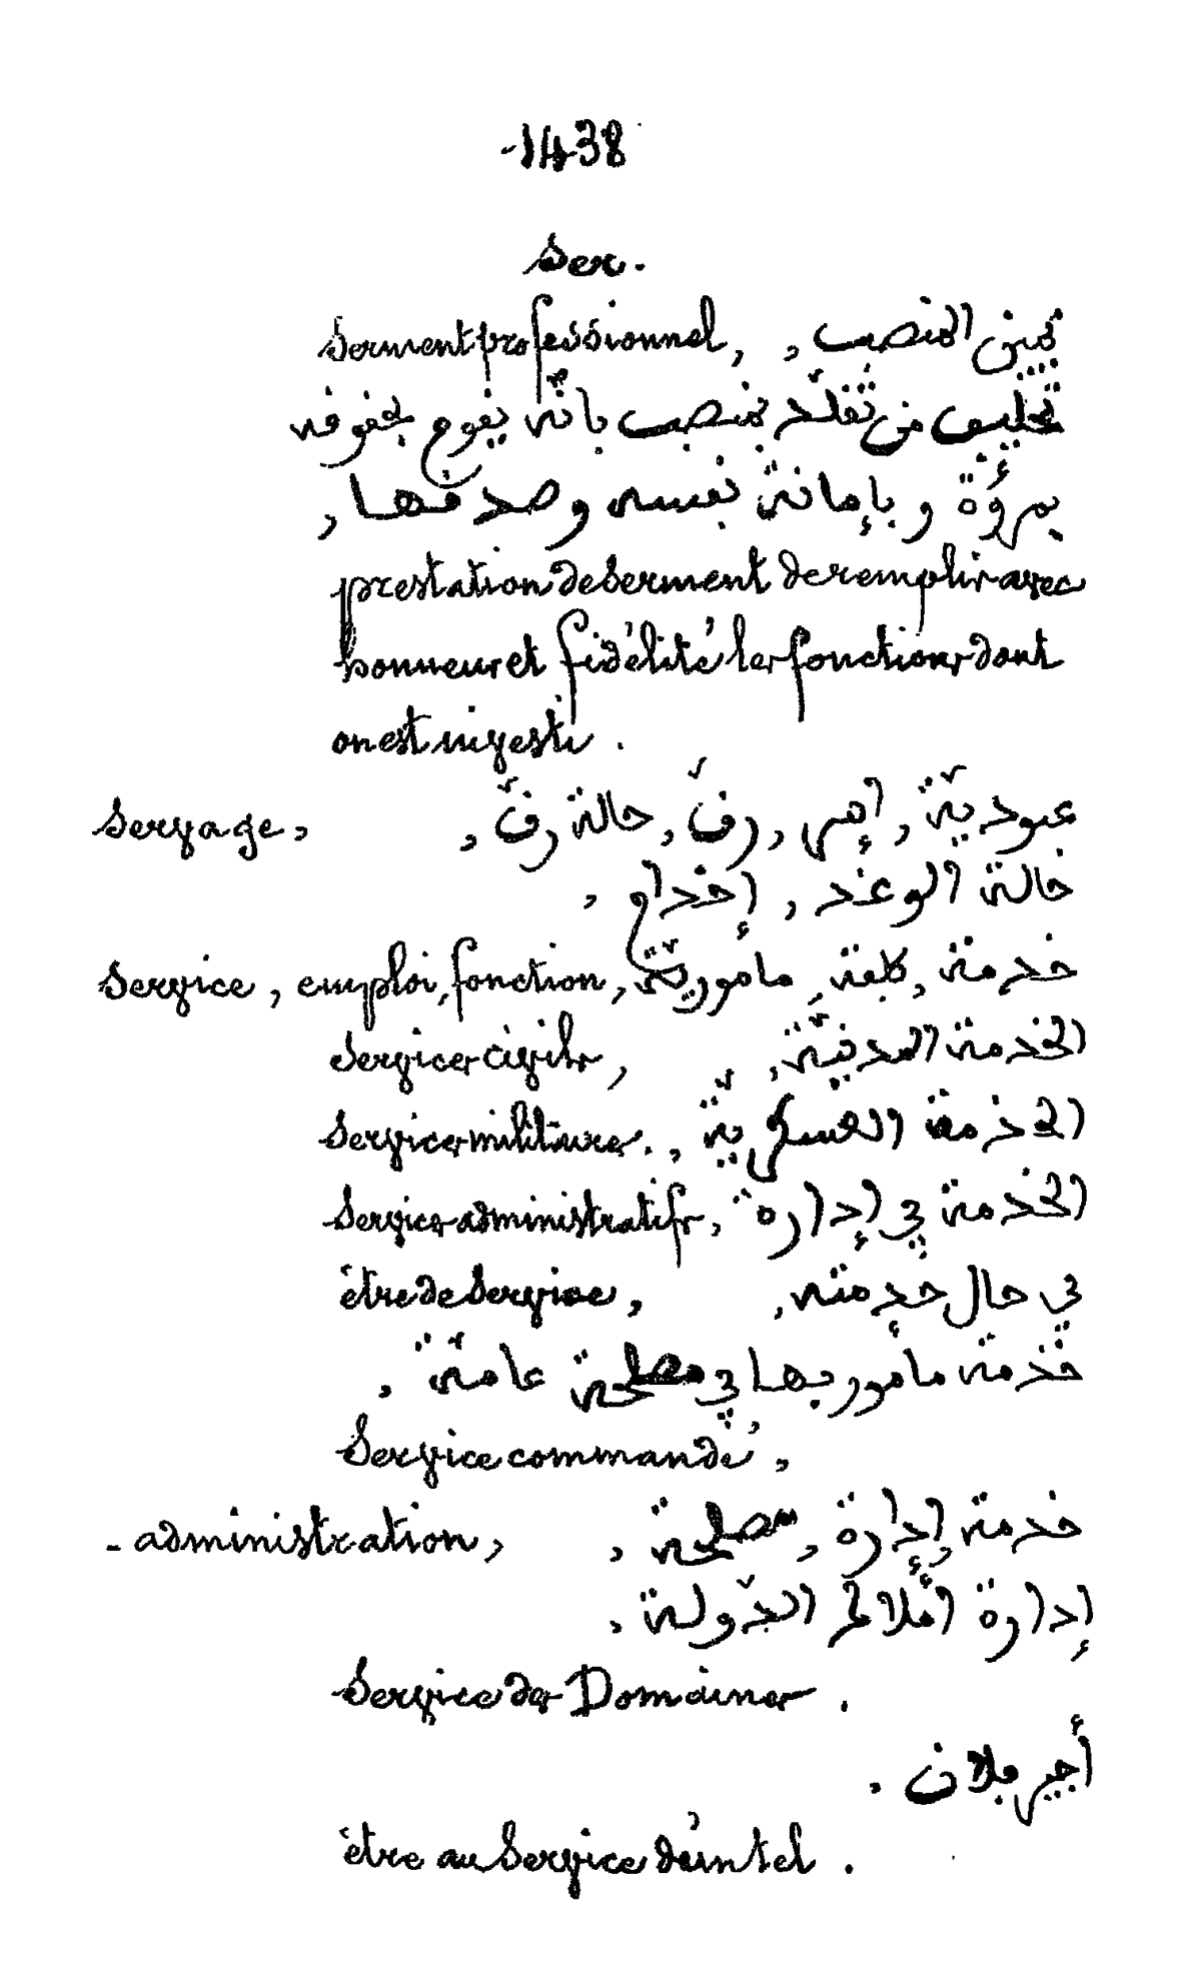 -1438
Ser.
Serment professionnel, , يمين المنصب
تحليف من تقلّد بمنصب بأنّه يقوم بحقوقه
بمروءة و بإمانة نفسه وصدقها ,
prestation de Serment de remplir avec
honneur et fidélité les fonctions dont
on est investi .
Servage, عبوديّة , إصر , رقّ , حالة رقّ ,
حالة الوغد , إخدام ,
Service, emploi, fonction, خدمة , كلفة , مأموريّة
Services civils, الخدمة المدنيّة ,
Services militaires . , الخدمة العسكريّة
Services administratifs, الخدمة في إدارة
être de Service, في حال خدمته ,
خدمة مأمور بها في مصلحة عامّة ,
Service commandé ,
- administration, خدمة , إدارة , مصلحة ,
إدارة أملاك الدّولة ,
Service des Domaines .
أجير فلان ,
être au Service d'un tel .